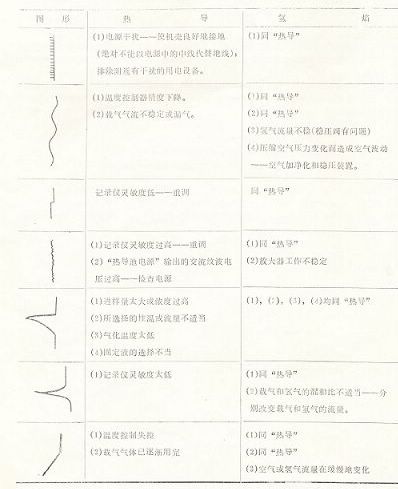 图 形 热 导 氢 焰
(1)电源干扰——应机壳良好地接地
(绝对不能以电源中的中线代替地线);
排除附近有干扰的用电设备。
(1)同“热导”
(1)温度控制器精度下降。
(2)载气气流不稳定或漏气。
(1)同“热导”
(2)同“热导”
(3)氢气流量不稳(稳压阀有问题)
(4)压缩空气压力变化而造成空气波动
——空气加净化和稳压装置。
记录仪灵敏度低——重调
同“热导”
(1)记录仪灵敏度过高——重调
(2)“热导池电源”输出的交流纹波电
压过高——检查电源
(1)同“热导”
(2)放大器工作不稳定
(1)进样量太大或浓度过高
(2)所选择的柱温或流量不适当
(3)气化温度太低
(4)固定液的选择不当
(1),(2),(3),(4)均同“热导”
(1)记录仪灵敏度太低
(1)同“热导”
(2)载气和氢气的混和比不适当——分
别改变载气和氢气的流量。
(1)温度控制失控
(2)载气气体已逐渐用完
(1)同“热导”
(2)同“热导”
(3)空气或氢气流量在缓慢地变化